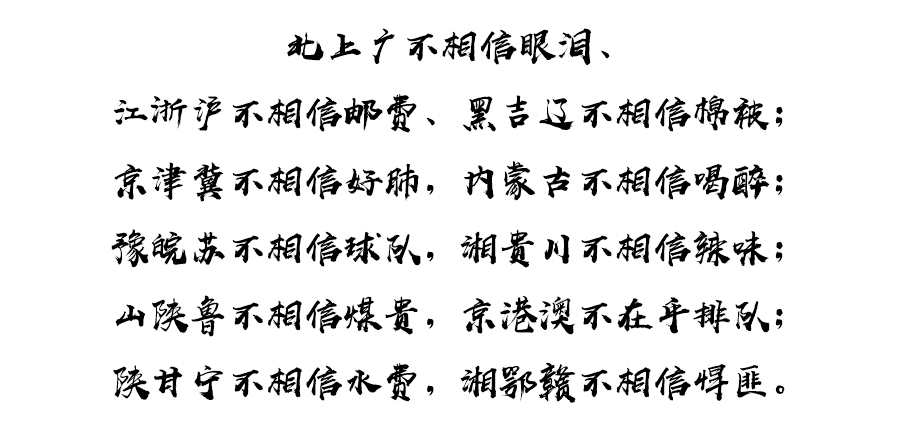 北上广不相信眼泪、
江浙沪不相信邮费、黑吉辽不相信棉被；
京津冀不相信好肺，内蒙古不相信喝醉；
豫皖苏不相信球队，湘贵川不相信辣味；
山陕鲁不相信煤贵，京港澳不在乎排队；
陕甘宁不相信水费，湘鄂赣不相信悍匪。